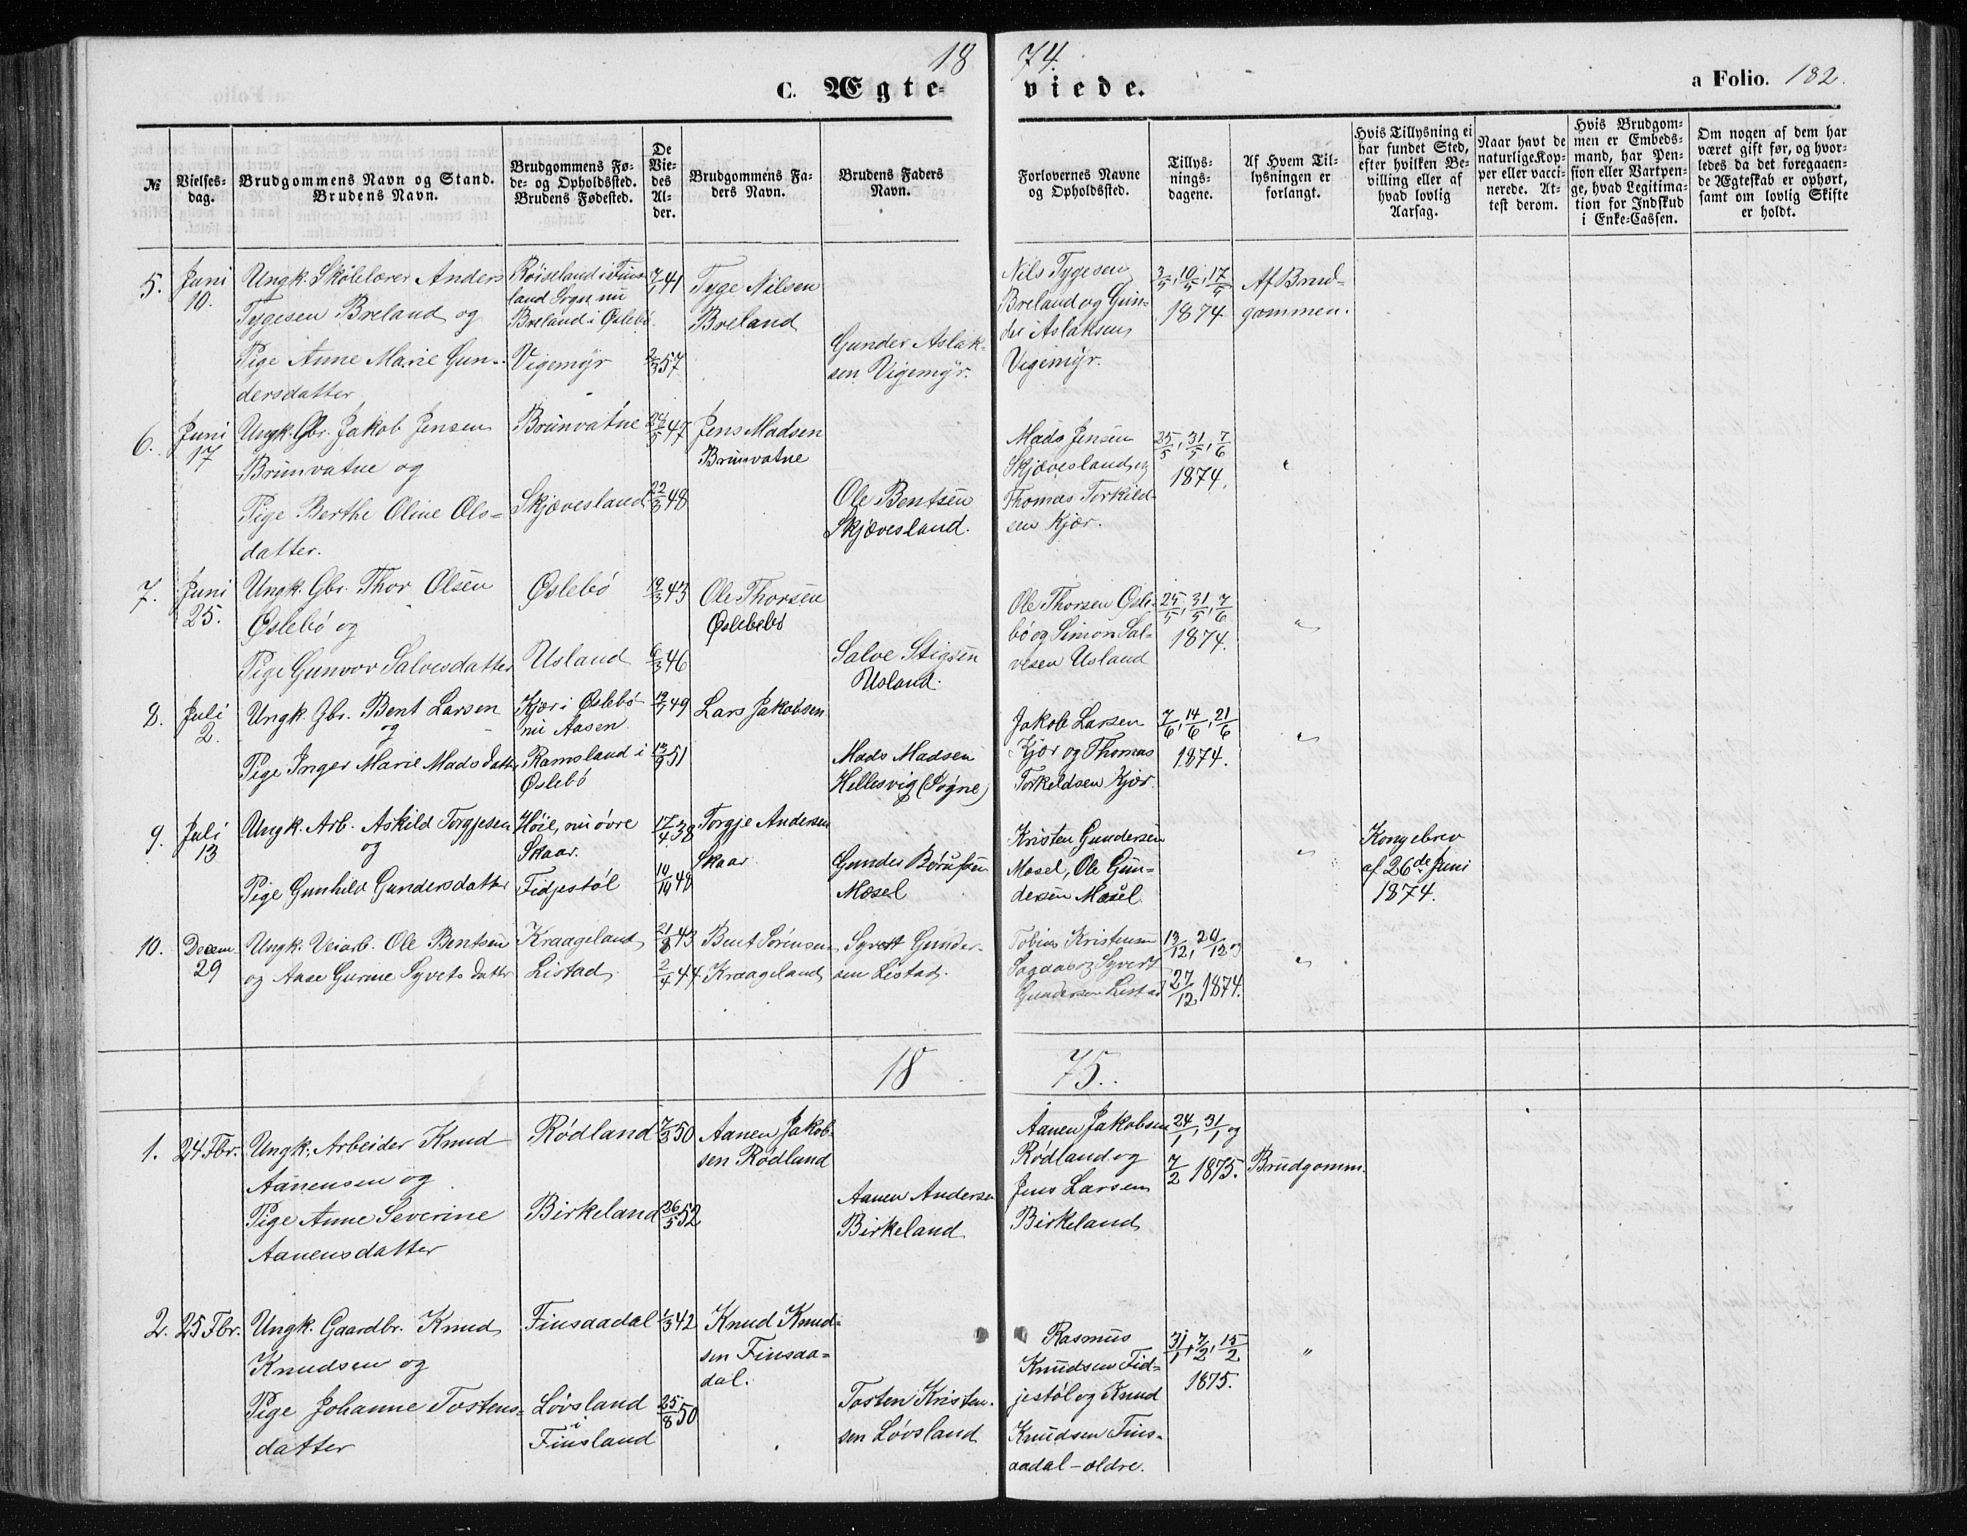 18 74.
C. Ægte- viede.
a Folio. 182.
№
Vielses-
dag.
Brudgommens Navn og Stand.
Brudens Navn.
Brudgommens Fø-
de- og Opholdssted.
Brudens Fødested.
De
Vie-
des
Al-
der.
Brudgommens Fa-
ders Navn.
Brudens Faders
Navn.
Forlovernes Navne
og Opholdssted.
Tillys-
nings-
dagene.
Af Hvem Til-
lysningen er
forlangt.
Hvis Tillysning ei
har fundet Sted,
efter hvilken Be-
villing eller af
hvad lovlig
Aarsag.
Naar havt de
naturlige Kop-
per eller vacci-
nerede. At-
test derom.
Hvis Brudgom-
men er Embeds-
mand, har Pen-
sion eller Vartpen-
ge, hvad Legitima-
tion for Indskud
i Enke-Cassen.
Om nogen af dem har
været gift før, og hvor-
ledes da det foregaaen-
de Ægteskab er ophørt,
samt om lovlig Skifte
er holdt.
5.
Juni
10.
Ungk. Skolelærer Anders
Tygesen Breland og
Pige Anne Marie Gun-
dersdatter
Röiseland i Fins-
land Sogn, nu
Breland i Øslebö
Vigemÿr
7/1 41
2/3 57
Tyge Nilsen
Breland
Gunder Aslak-
sen Vigemÿr.
Nils Tygesen
Breland og Gun-
der Aslaksen
Vigemÿr.
3/5, 10/5, 17/5
1874
Af Brud-
gommen.
6.
Juni
17
Ungk. Gbr. Jakob Jensen
Brunvatne og
Pige Berthe Oline Ols-
datter.
Brunvatne
Skjævesland
24/5 47
22/3 48
Jens Madsen
Brunvatne
Ole Bentsen
Skjævesland.
Mads Jensen
Skjævesland og
Thomas Torkild-
sen Kjær.
25/5, 31/5, 7/6
1874.
"
7.
Juni
25.
Ungk. Gbr. Thor Olsen
Øslebö og
Pige Gunvor Salvesdatter
Øslebö
Usland
19/3 43
6/3 46
Ole Thorsen
Øslebebö
Salve Stigsen
Usland.
Ole Thorsen Øsle-
bö og Simon Sal-
vesen Usland
25/5, 31/5, 7/6
1874.
"
8.
Juli
2.
Ungk. Gbr. Bent Larsen
og
Pige Inger Marie Madsdatter
Kjær i Øslebö
nu Aasen
Ramsland i
Øslebö
12/7 49
13/9 51
Lars Jakobsen
Mads Madsen
Hellesvig (Søgne)
Jakob Larsen
Kjær og Thomas
Torkeldsen Kjær.
7/6, 14/6, 21/6
1874.
"
9.
Juli
13
Ungk. Arb. Askild Torgjesen
og
Pige Gunhild Gundersdatter
Höie, nu övre
Skaar.
Fidjestöl
17/4 38
14/10 48
Torgje Andersen
Skaar
Gunder Børufsen
Mosel
Kristen Gundersen
Mosel, Ole Gun-
dersen Mosel.
"
Kongebrev
af 26de Juni
1874.
10.
Decem-
29
Ungk. Veiarb. Ole Bentsen
og Aase Gurine Syvertsdatter
Kraageland
Listad
21/8 43
2/4 44
Bent Sörensen
Kraageland
Syvert Gunder-
sen Listad.
Tobias Kristensen
Sagdal og Syvert
Gundersen Listad
13/12, 20/12 og
27/12 1874.
"
18 75.
1.
24 Fbr.
Ungk. Arbeider Knud
Aanensen og
Pige Anne Severine
Aanensdatter
Rödland
Birkeland
7/3 50
26/5 52
Aanen Jakob-
sen Rödland
Aanen Andersen
Birkeland
Aanen Jakobsen
Rödland og
Jens Larsen
Birkeland
24/1, 31/1 og
7/2 1875.
Brudgomm.
2.
25 Fbr.
Ungk. Gaardbr. Knud
Knudsen og
Pige Johanne Tostens-
datter
Finsaadal
Lövsland
i
Finsland
1/3 42
25/8 50
Knud Knud-
sen Finsaa-
dal.
Tosten Kristen-
sen Lövsland
Rasmus
Knudsen Fid-
jestöl og Knud
Knudsen Fins-
aadal - ældre.
31/1, 7/2, 15/2
1875.
"